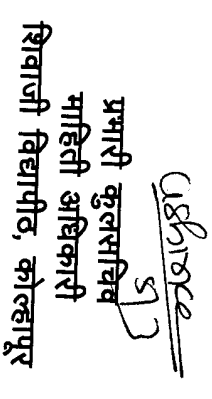 प्रभारी कुलसचिव
माहिती अधिकारी
शिवाजी विद्यापीठ, कोल्हापूर